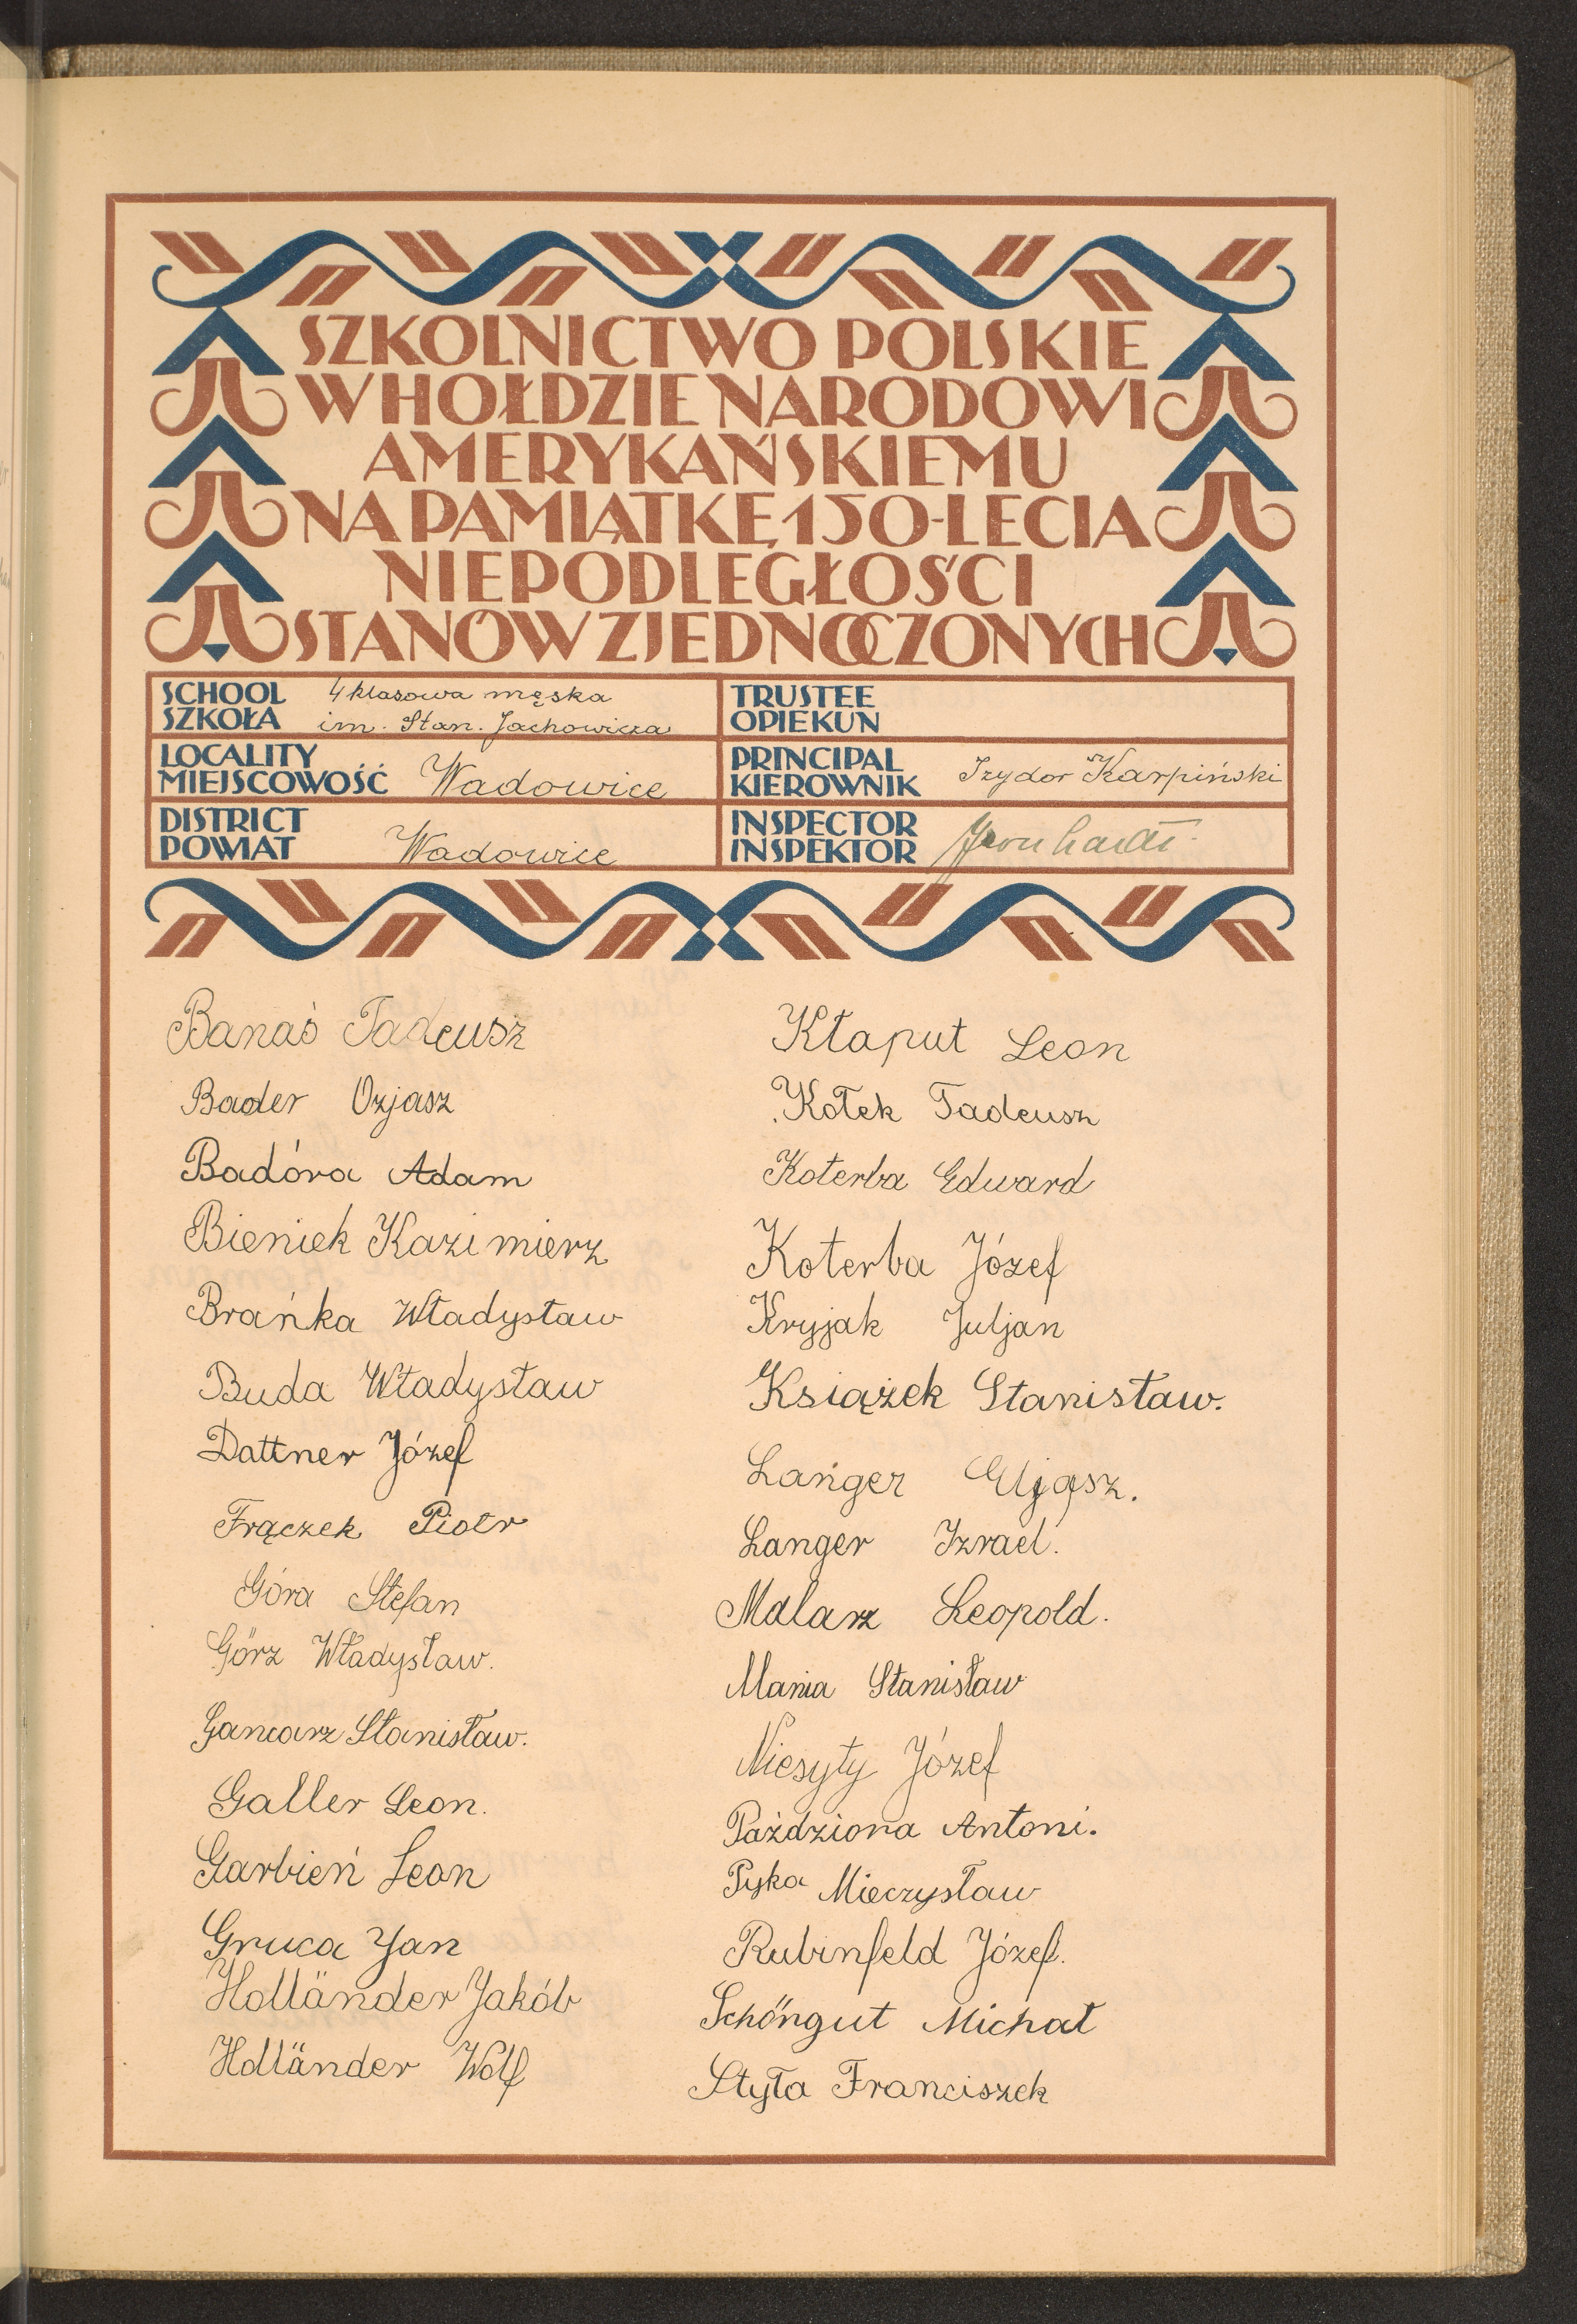 SZKOLNICTWO POLSKIE
W HOŁDZIE NARODOWI
AMERYKAŃSKIEMU
NA PAMIĄTKĘ 150-LECIA
NIEPODLEGŁOŚCI
STANÓW ZJEDNOCZONYCH
SCHOOL
SZKOŁA
4 klasowa męska
im. Stan. Jachowicza
TRUSTEE
OPIEKUN
LOCALITY
MIEJSCOWOŚĆ
Wadowice
PRINCIPAL
KIEROWNIK
Izydor Karpiński
DISTRICT
POWIAT
Wadowice
INSPECTOR
INSPEKTOR
Banaś Tadeusz
Bader Ozjasz
Badóra Adam
Bieniek Kazimierz
Brańka Władysław
Buda Władysław
Dattner Józef
Frączek Piotr
Góra Stefan
Görz Władysław.
Gancarz Stanisław.
Galler Leon.
Garbień Leon
Gruca Jan
Holländer Jakób
Holländer Wolf
Kłaput Leon
Kołek Tadeusz
Koterba Edward
Koterba Józef
Kryjak Juljan
Książek Stanisław.
Langer
Langer Izrael.
Malarz Leopold.
Mania Stanisław
Niesyty Józef
Paździora Antoni.
Pyka Mieczysław
Rubinfeld Józef.
Schöngut Michał
Styła Franciszek